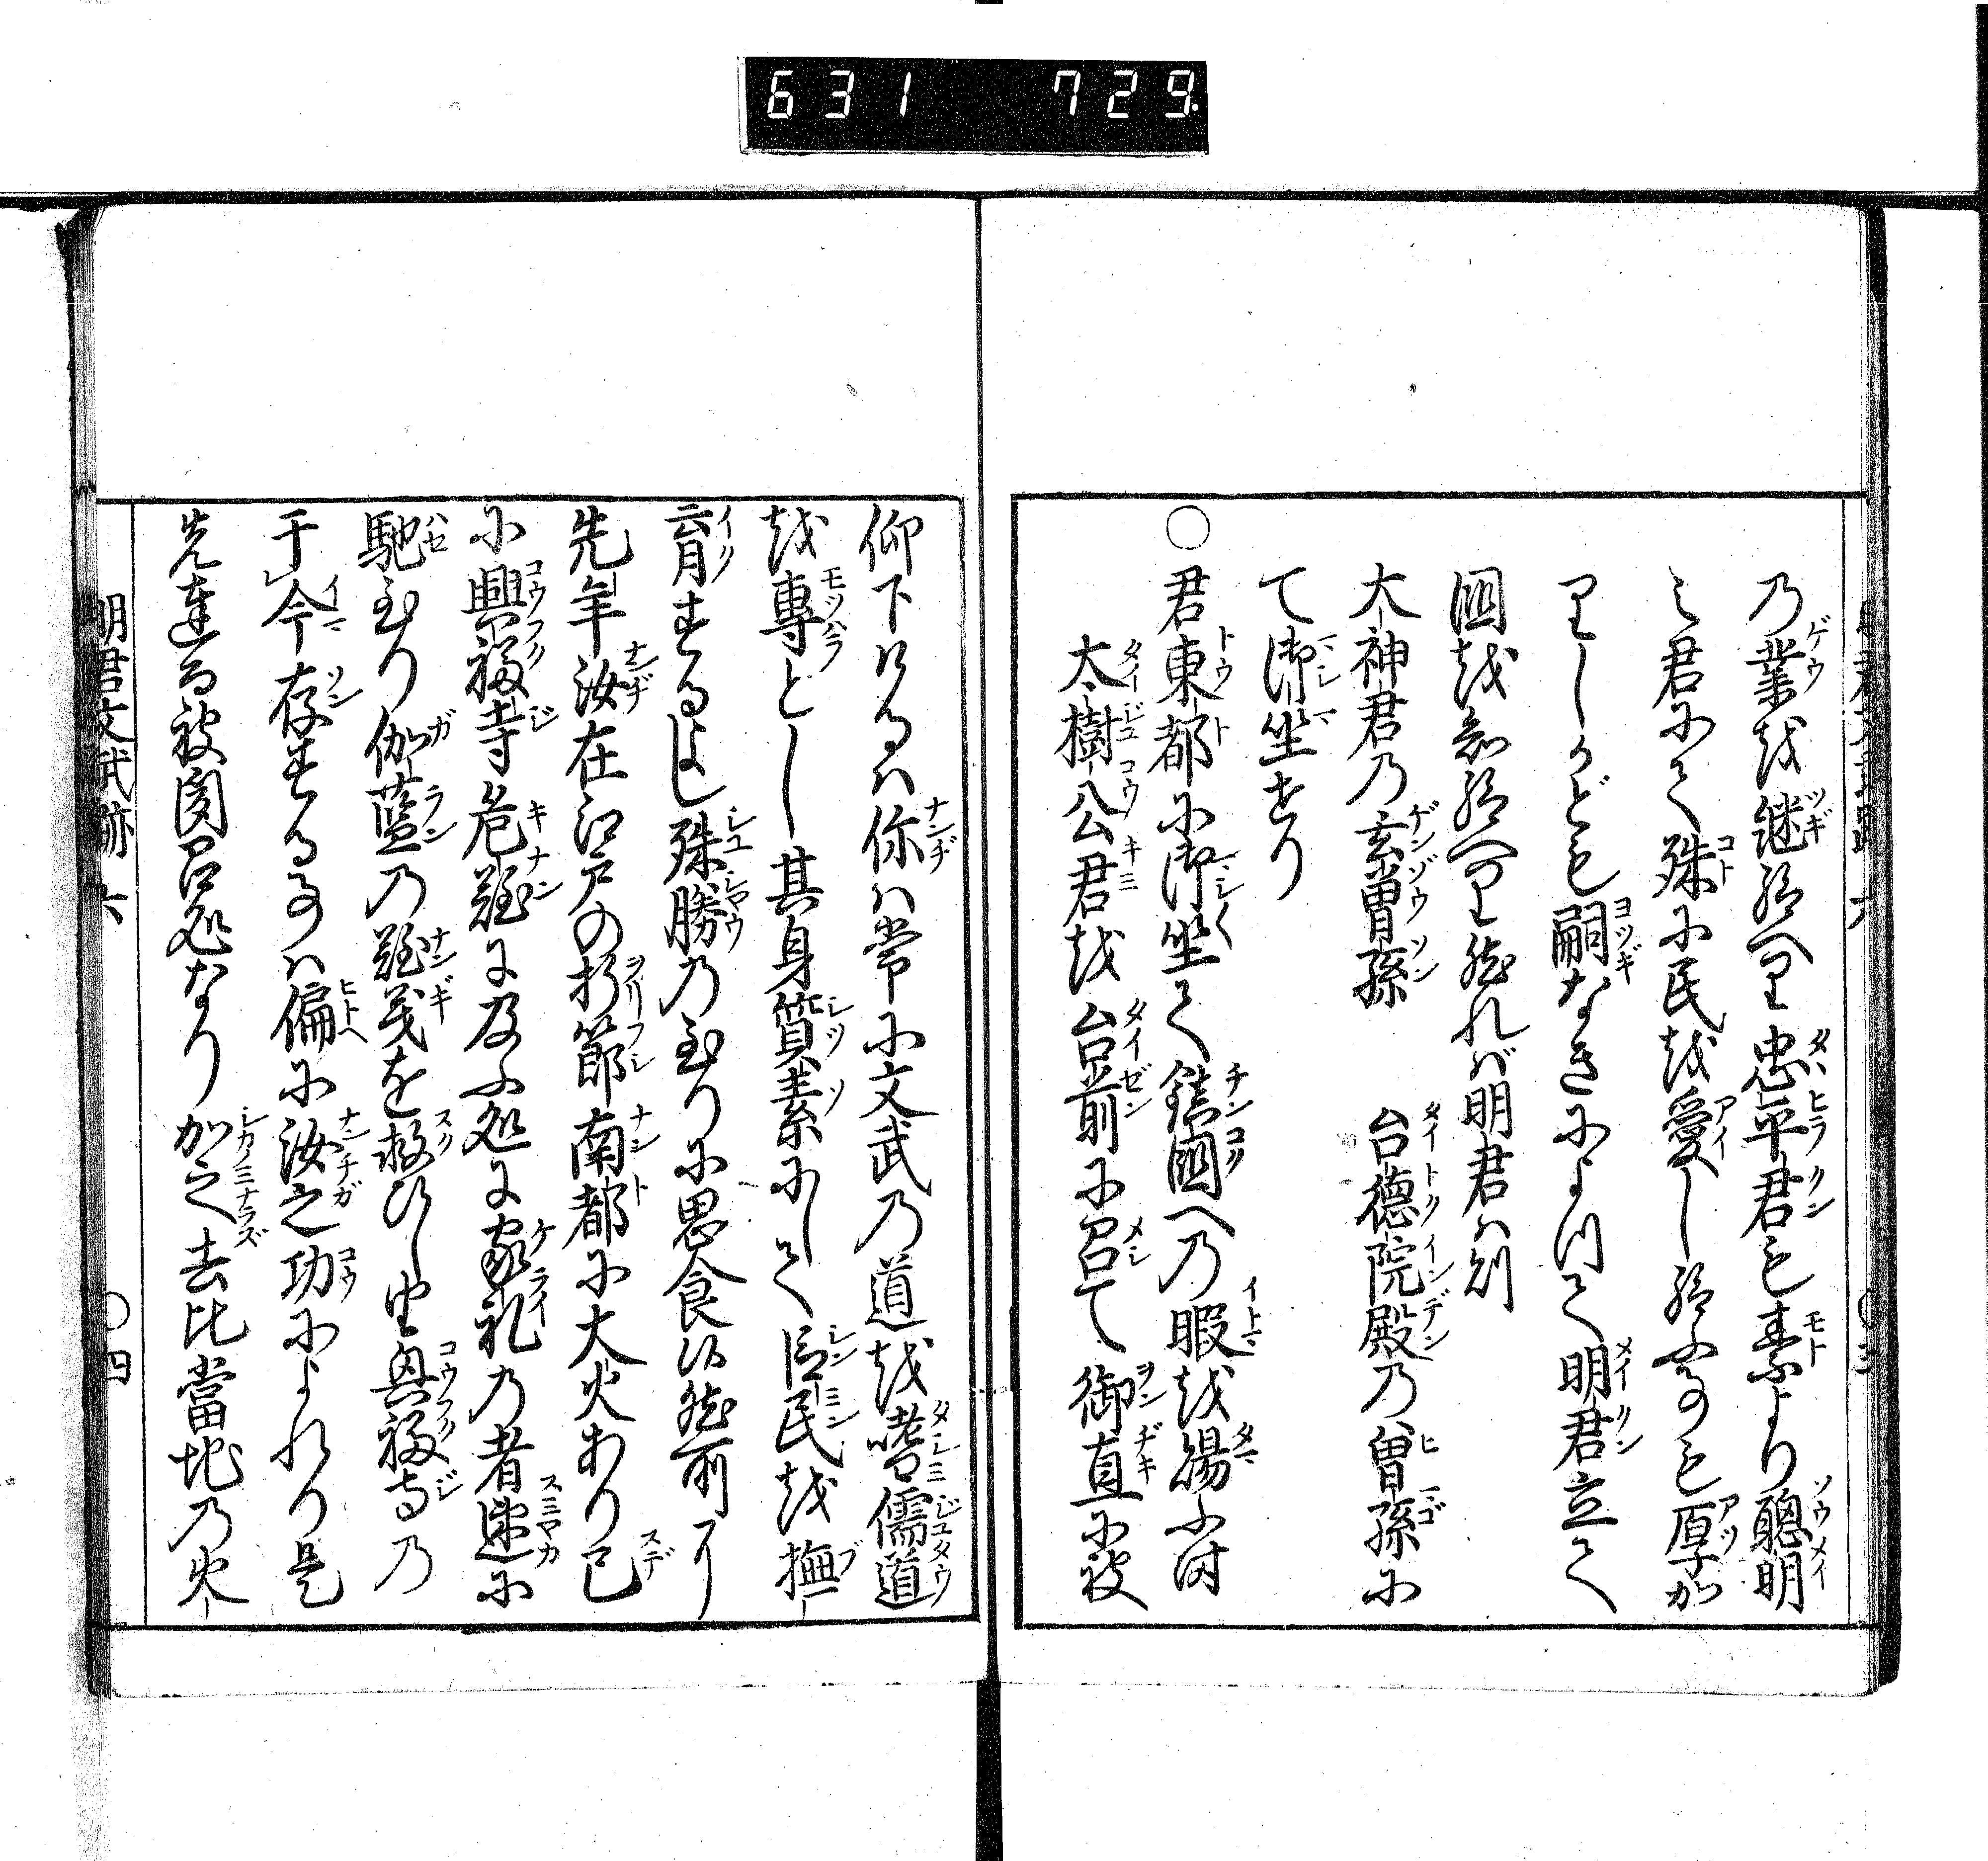 631 729
乃業越継給へ里忠平君も素より聰明
之君にて殊に民越愛し給ふ事も厚か
りしかども嗣なきによつて明君立て
國越知給へり然れば明君は則
大神君乃玄曽孫　台徳院殿乃曽孫に
て御坐せり
○君東都に御坐て鎮國への暇越賜ふ時
太樹公君越台前に召て御直に被
仰下けるは你は常に文武乃道越嗜儒道
越専とし其身質素にして臣民越撫
育するよし殊勝乃至りに思食は然所
先年汝在江戸の折節南都に大火あり已
に興福寺危難に及ふ処に家礼乃者速に
馳至り伽藍乃難義を救ひし由興福寺乃
于今存する事は偏に汝之功によれり是
先達る被聞召処なり加之去比當地乃火
明君文武跡 六 ○四